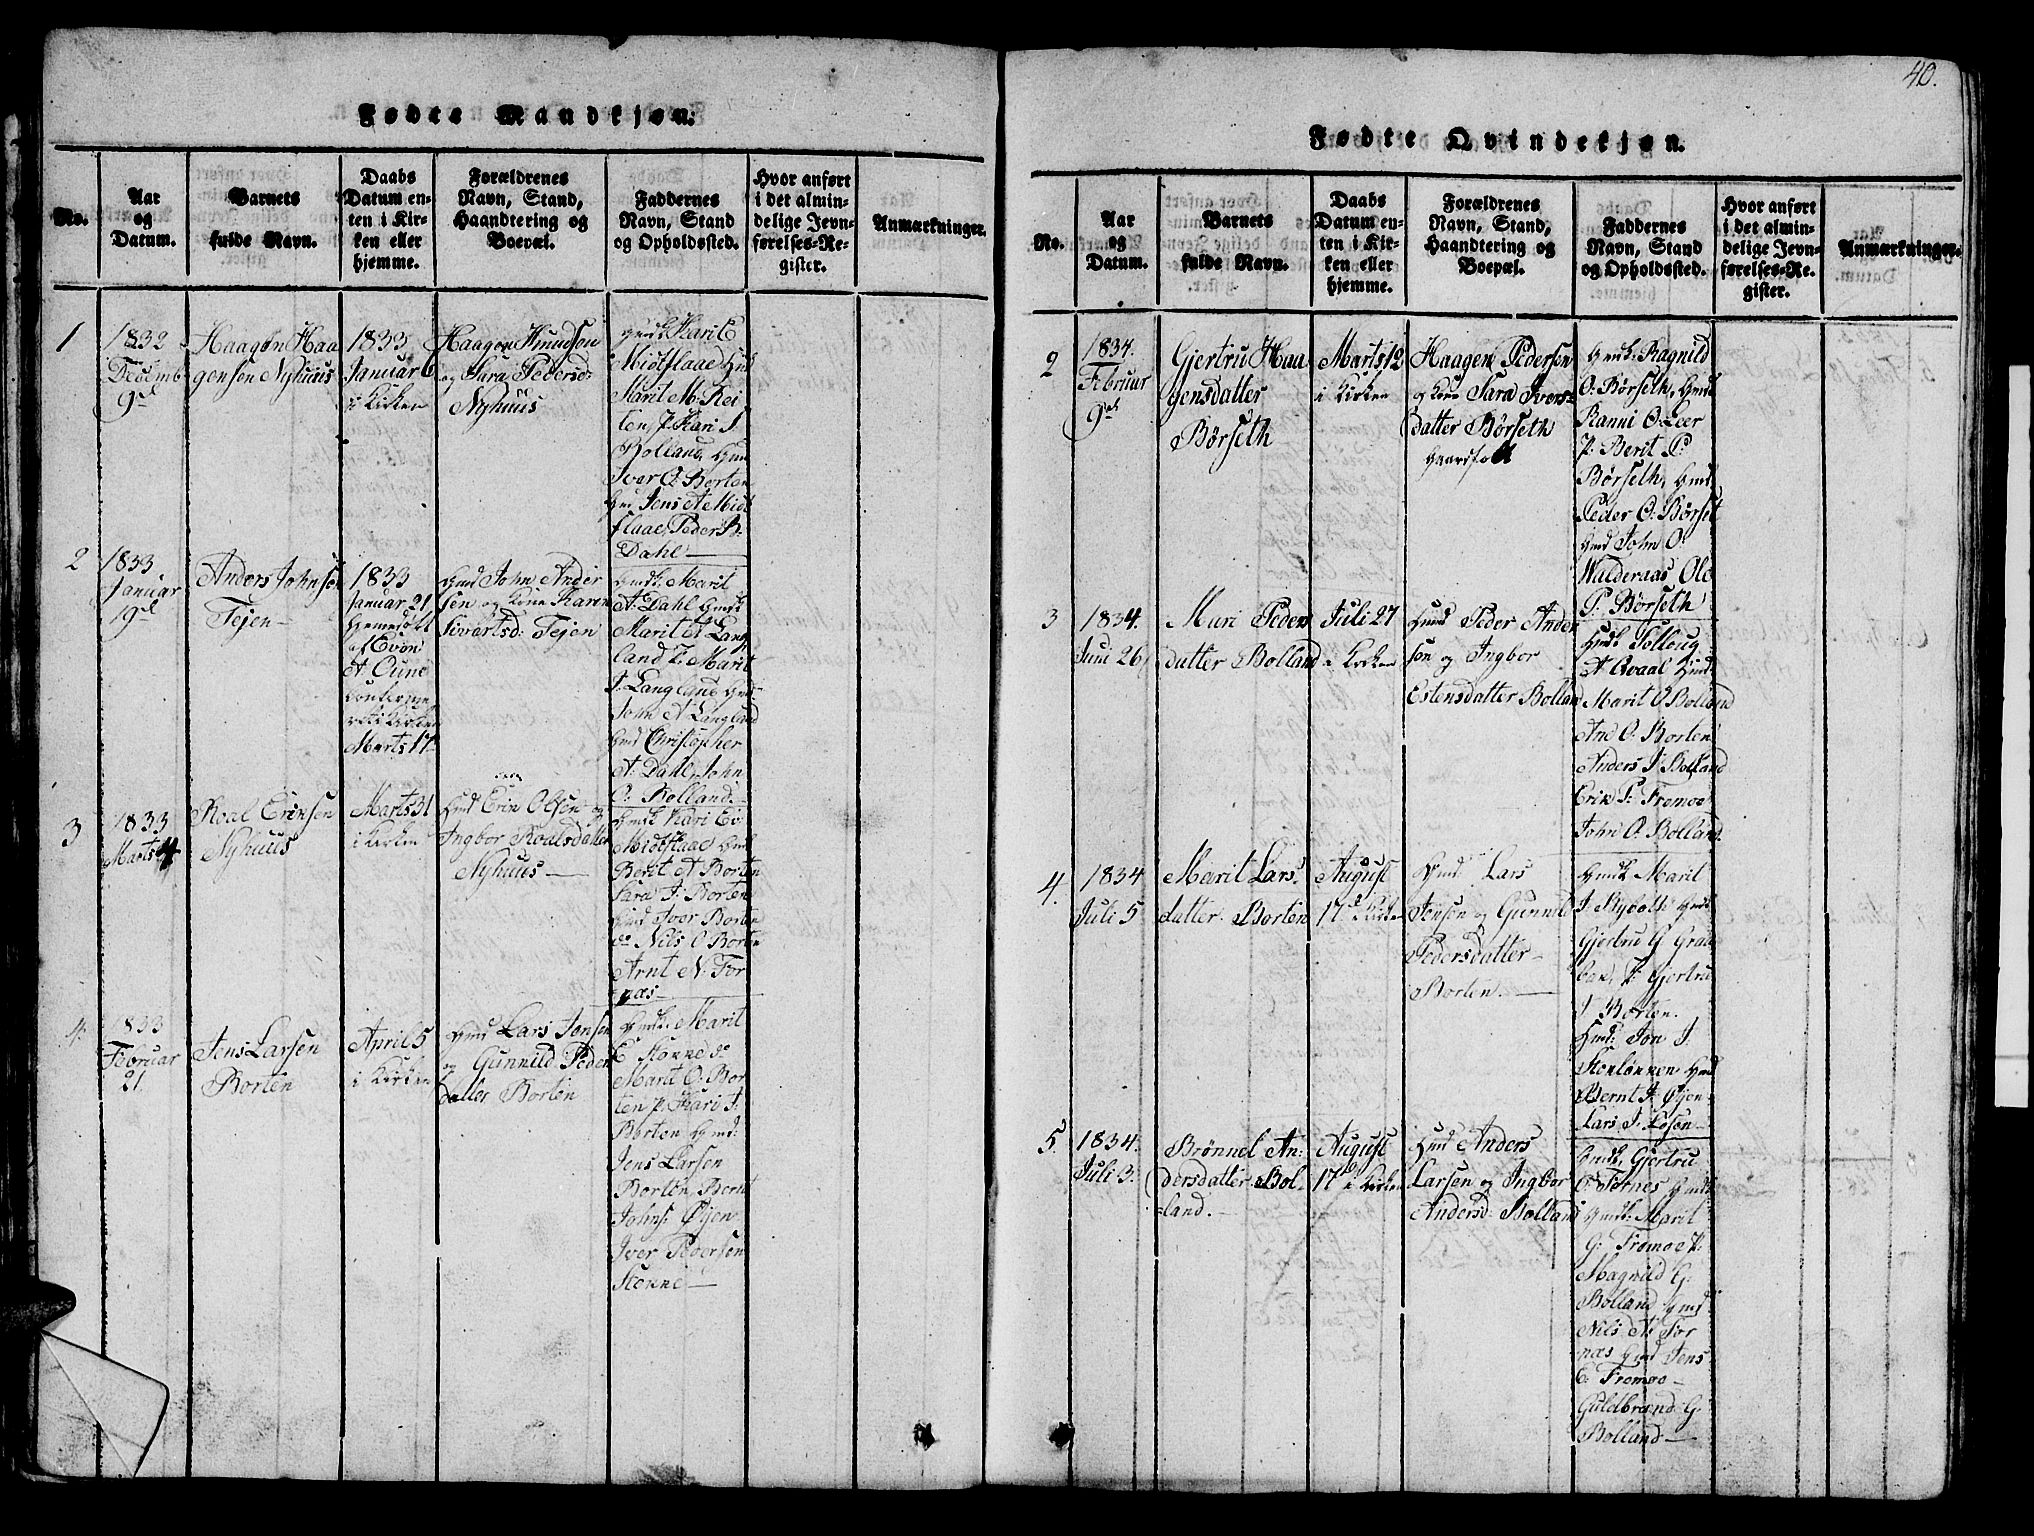 Fødte Mandkjøn.
No.
Aar
og
Datum.
Barnets
fulde Navn.
Daabs
Datum en-
ten i Kir-
ken eller
hjemme.
Forældrenes
Navn, Stand,
Haandtering og
Boepæl.
Faddernes
Navn, Stand
og Opholdssted.
Hvor anført
i det almin-
delige Jevn-
førelses-Re-
gister.
Anmærkninger.
1
1832
Decemb
9de
Haagen Haa
gensen Nyhuus
1833
Januar 6
i Kirken
Haagen Knudsen
og Sara Pedersd:
Nyhuus
Gmdk: Kari E
Midtflaae Gm
Marit M: Rei
ten, P. Kari J.
Bolland, Gmd
Iver O: Borten
Gmd Jens A Midt
flaae, Peder B:
Dahl
2
1833
Januar
19de
Anders Johnsen
Tejen
1833
Januar 21
Hjemedøbt
af Even
A Oune
Confirme
ret i Kirken
Marts 17
Gmd John Ander
sen og Kone Karen
Sivertsd: Tejen
Gmdk: Marit
A: Dahl Gmdk
Marit A Lang
land P. Marit
J. Langland Gmd
John A Langland
Gmd Christopher
A: Dahl, John
O: Bolland
3
1833
Marts 4
Roal Ericsen
Nyhuus
Marts 31
i Kirken
Gmd Eric Olsen og
Ingbor Roalsdatter
Nyhuus
Gmdk Kari E
Midtflaae Gmd
Berit A Borten
Sara J: Borten
Gmd Iver Borten
do Nils O Borten
Arnt N: For
næs
4.
1833
Februar
21
Jens Larsen
Borten
April 5
i Kirken
Gmd Lars Jensen
og Gunnild Peders
datter Borten
Gmdk: Marit
E Størne do
Marit O: Bor
ten P. Kari J:
Borten Gmd:
Jens Larsen
Borten, Bernt
Johns: Øijen
Iver Pedersen
Størne
40.
Fødte Qvindekjøn.
No.
Aar
og
Datum.
Barnets
fulde Navn.
Daabs
Datum en-
ten i Kir-
ken eller
hjemme.
Forældrenes
Navn, Stand,
Haandtering og
Boepæl.
Faddernes
Navn, Stand
og Opholdssted.
Hvor anført
i det almin-
delige Jevn-
førelses-Re-
gister.
Anmærkninger.
2
1834.
Februar
9de
Gjertru Haa
gensdatter
Børseth
Marts 12
i Kirken
Haagen Pedersen
og Kone Sara Ivers-
datter Børseth
Gaardfolk
Gmdk: Ragnild
O: Børseth, Gmdk
Ranni O: Leer
P: Berit P:
Børseth, Gmd
Peder O: Børset
Gmd John O:
Walderaas Ole
P: Børseth
3
1834.
Juni 26
Mari Peders
datter Bolland
Juli 27
i Kirken
Gmd Peder Ander
sen og Ingbor
Estensdatter Bolland
Gmdk Solloug
A Qvaal Gmd
Marit O Bolland
Ane O: Borten
Anders J: Bolland
Erik P: Fremoe
John O: Bolland.
4.
1834
Juli 5
Marit Lars-
datter Borten
August
17de i Kirken
Gmd: Lars
Jensen og Gunnild
Pedersdatter
Borten.
Gmdk Marit
Gjertru G. Graae
ber, P: Gjertru
J Borten.
Gmd: Jon J.
Gmd
Bernt J: Øijen
Lars J: Losen
5.
1834.
Juli 3.
Brønnel An:
dersdatter Bol-
land.
August
17de i Kirken
Gmd Anders
Larsen og Ingbor
Andersd: Bolland
Gmdk, Gjertru
O Fornes Gmdk
Gmdk: Marit
G: Fremoe P:
Magnild G:
Bolland Gmd
Nils A: For
næs Gmd Jens
E: Fremoe
Guldbrand G.
Bolland